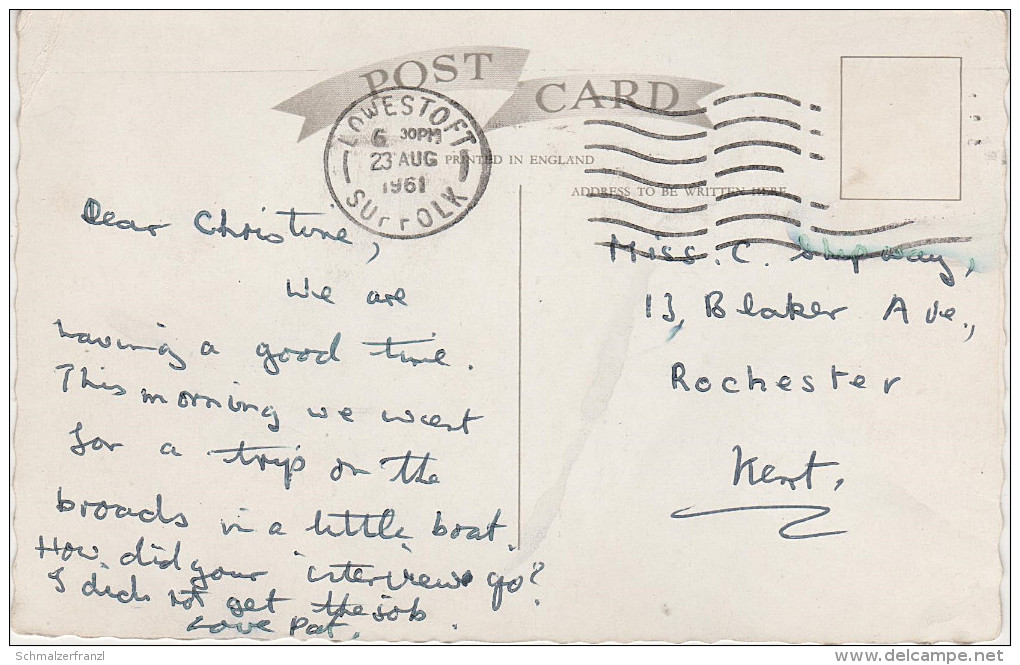 POST CARD
LOWESTOFT
6 30PM
23 AUG
1961
SUFFOLK
PRINTED IN ENGLAND
ADDRESS TO BE WRITTEN HERE
Dear Christine,
We are
having a good time.
This morning we went
for a trip on the
broads in a little boat.
How did your interviews go?
I did not get the job.
Love Pat.
Miss. C. Shipway,
13, Blaker Ave.,
Rochester
Kent.
Schmalzerfranzl